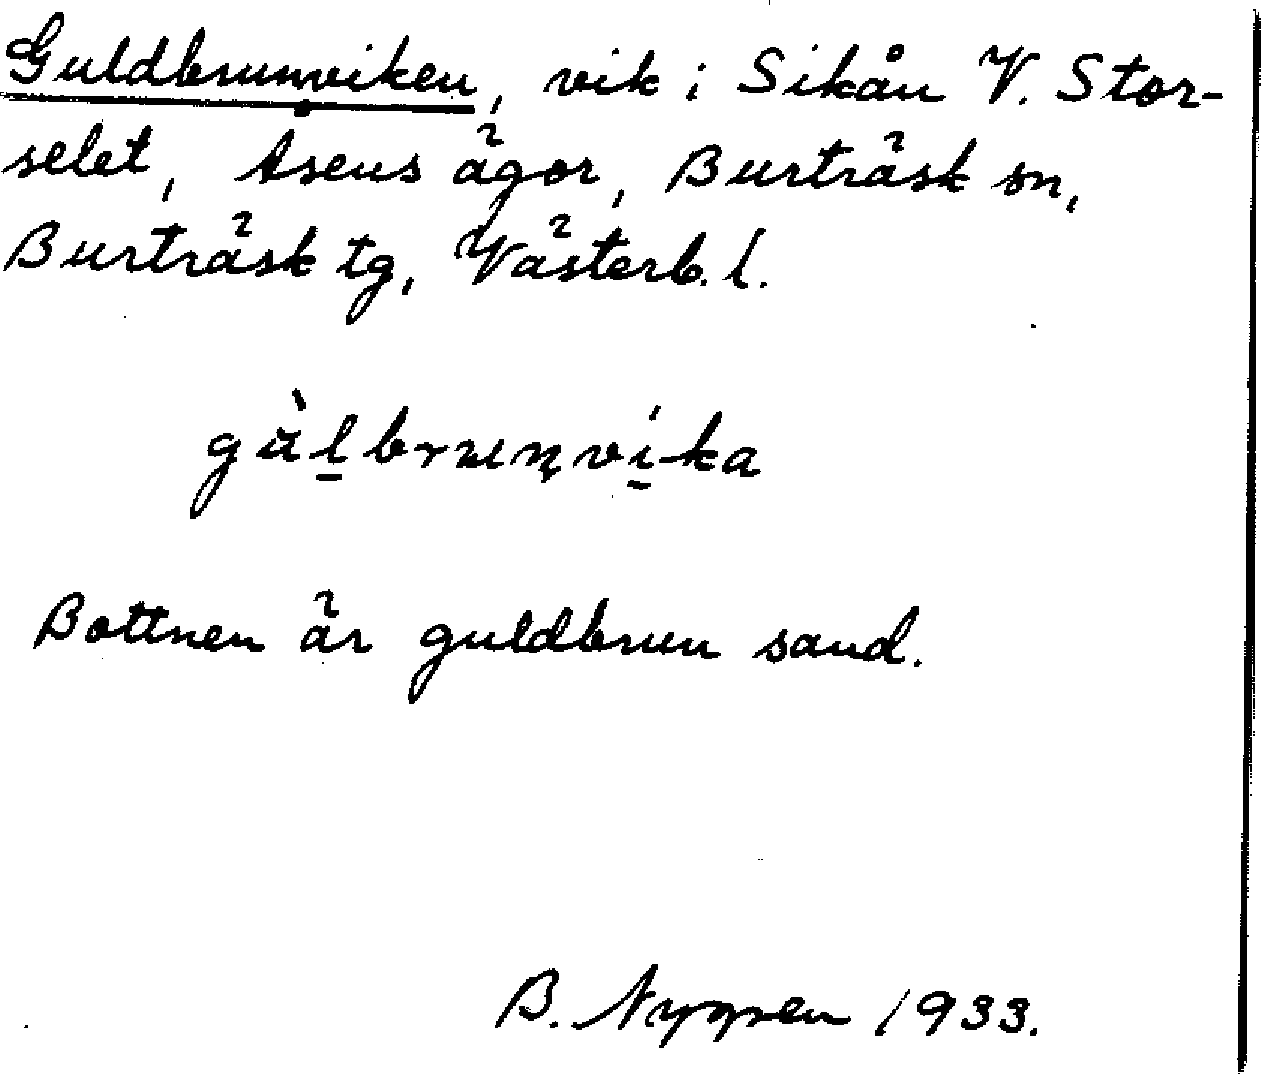 Guldbrunviken, vik i Sikån V. Stor-
selet, Åsens ägor, Burträsk sn,
Burträsk tg, Västerb. l.
gùl̲brunvi̲ka
Bottnen är guldbrun sand.
B. Nygren 1933.